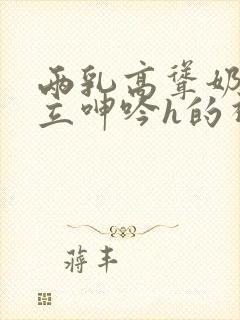 两乳高耸奶
立呻吟h的
蒋丰